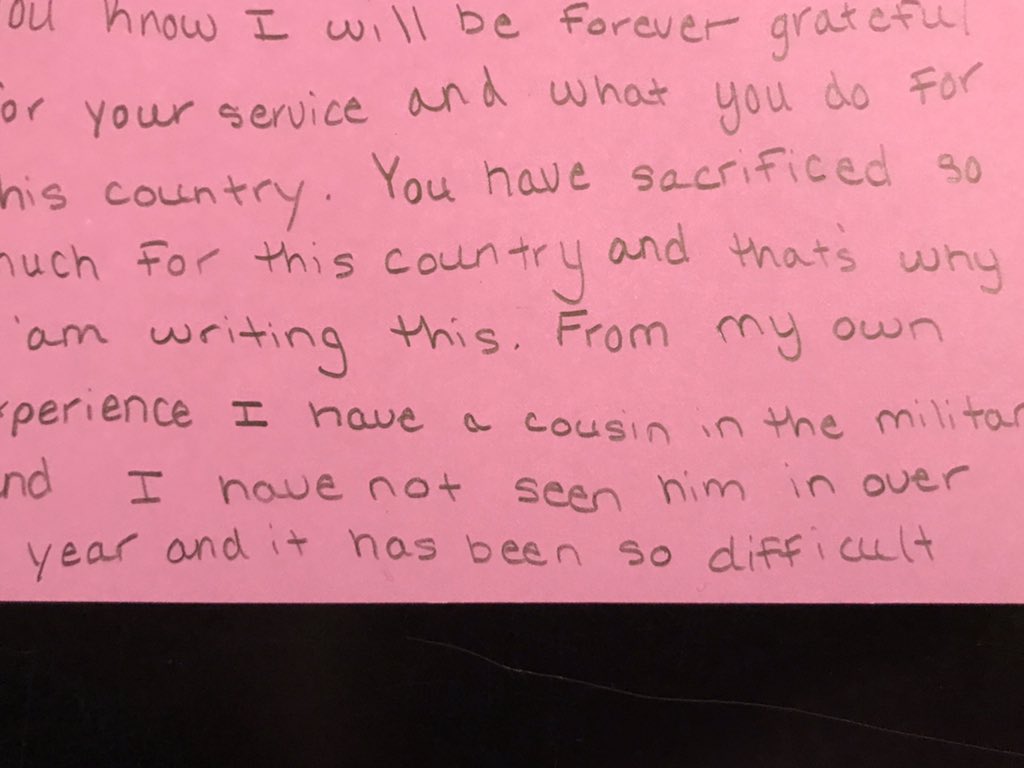 ou know I will be forever grateful
or your service and what you do for
his country. You have sacrificed so
uch for this country and that's why
'am writing this. From my own
xperience I have a cousin in the militar
nd I have not seen him in over
year and it has been so difficult